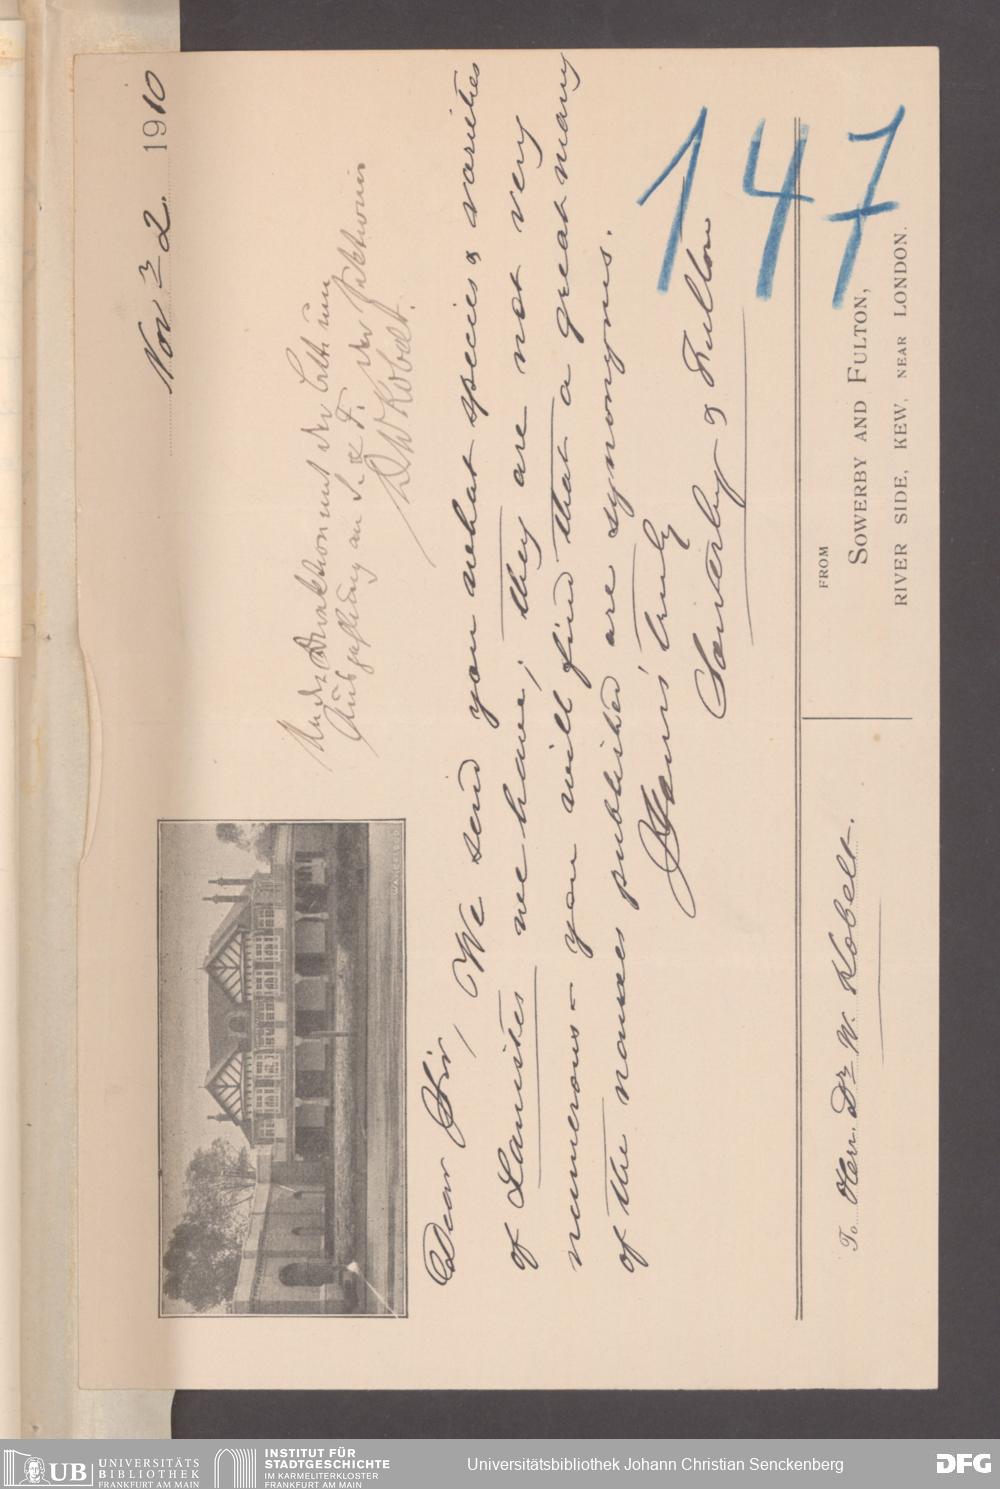 Nov 2. 1910
An die Direktion mit der Bitte um
an S. & F. der Sektion
Dr W Kobelt.
Dear Sir,
We send you what species & varieties
of Lanistes we have; they are not very
numerous – you will find that a great many
of the names published are synonyms.
Yours truly
Sowerby & Fulton
147
FROM
SOWERBY AND FULTON,
RIVER SIDE, KEW, NEAR LONDON.
To Herr. Dr W. Kobelt.
UB UNIVERSITÄTS
BIBLIOTHEK
FRANKFURT AM MAIN
INSTITUT FÜR
STADTGESCHICHTE
IM KARMELITERKLOSTER
FRANKFURT AM MAIN
Universitätsbibliothek Johann Christian Senckenberg
DFG